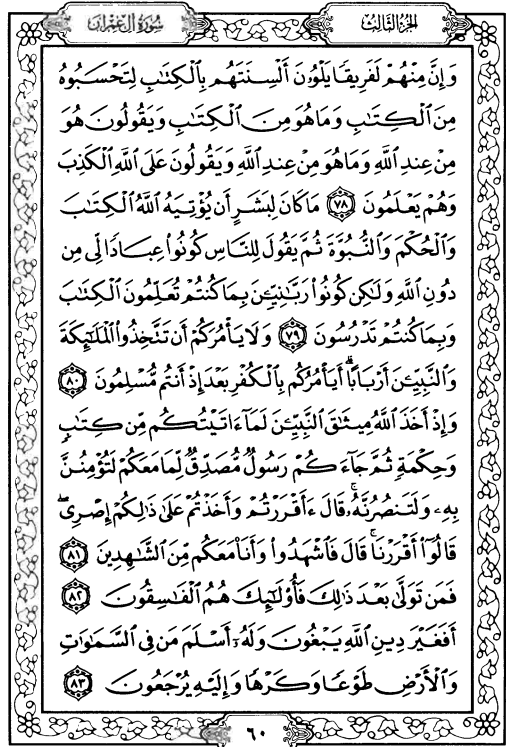 الجزء الثالث
سورة آل عمران
وَإِنَّ مِنْهُمْ لَفَرِيقًا يَلْوُۥنَ أَلْسِنَتَهُم بِالْكِتَٰبِ لِتَحْسَبُوهُ
مِنَ الْكِتَٰبِ وَمَا هُوَ مِنَ الْكِتَٰبِ وَيَقُولُونَ هُوَ
مِنْ عِندِ اللَّهِ وَمَا هُوَ مِنْ عِندِ اللَّهِ وَيَقُولُونَ عَلَى اللَّهِ الْكَذِبَ
وَهُمْ يَعْلَمُونَ ٧٨ مَا كَانَ لِبَشَرٍ أَن يُؤْتِيَهُ اللَّهُ الْكِتَٰبَ
وَالْحُكْمَ وَالنُّبُوَّةَ ثُمَّ يَقُولَ لِلنَّاسِ كُونُوا عِبَادًا لِّى مِن
دُونِ اللَّهِ وَلَٰكِن كُونُوا رَبَّٰنِيِّۦنَ بِمَا كُنتُمْ تُعَلِّمُونَ الْكِتَٰبَ
وَبِمَا كُنتُمْ تَدْرُسُونَ ٧٩ وَلَا يَأْمُرَكُمْ أَن تَتَّخِذُوا الْمَلَٰٓئِكَةَ
وَالنَّبِيِّۦنَ أَرْبَابًا ۗ أَيَأْمُرُكُم بِالْكُفْرِ بَعْدَ إِذْ أَنتُم مُّسْلِمُونَ ٨٠
وَإِذْ أَخَذَ اللَّهُ مِيثَٰقَ النَّبِيِّۦنَ لَمَآ ءَاتَيْتُكُم مِّن كِتَٰبٍ
وَحِكْمَةٍ ثُمَّ جَآءَكُمْ رَسُولٌ مُّصَدِّقٌ لِّمَا مَعَكُمْ لَتُؤْمِنُنَّ
بِهِۦ وَلَتَنصُرُنَّهُۥ ۚ قَالَ ءَأَقْرَرْتُمْ وَأَخَذْتُمْ عَلَىٰ ذَٰلِكُمْ إِصْرِى ۖ
قَالُوٓا أَقْرَرْنَا ۚ قَالَ فَاشْهَدُوا وَأَنَا مَعَكُم مِّنَ الشَّٰهِدِينَ ٨١
فَمَن تَوَلَّىٰ بَعْدَ ذَٰلِكَ فَأُولَٰٓئِكَ هُمُ الْفَٰسِقُونَ ٨٢
أَفَغَيْرَ دِينِ اللَّهِ يَبْغُونَ وَلَهُۥٓ أَسْلَمَ مَن فِى السَّمَٰوَٰتِ
وَالْأَرْضِ طَوْعًا وَكَرْهًا وَإِلَيْهِ يُرْجَعُونَ ٨٣
٦٠